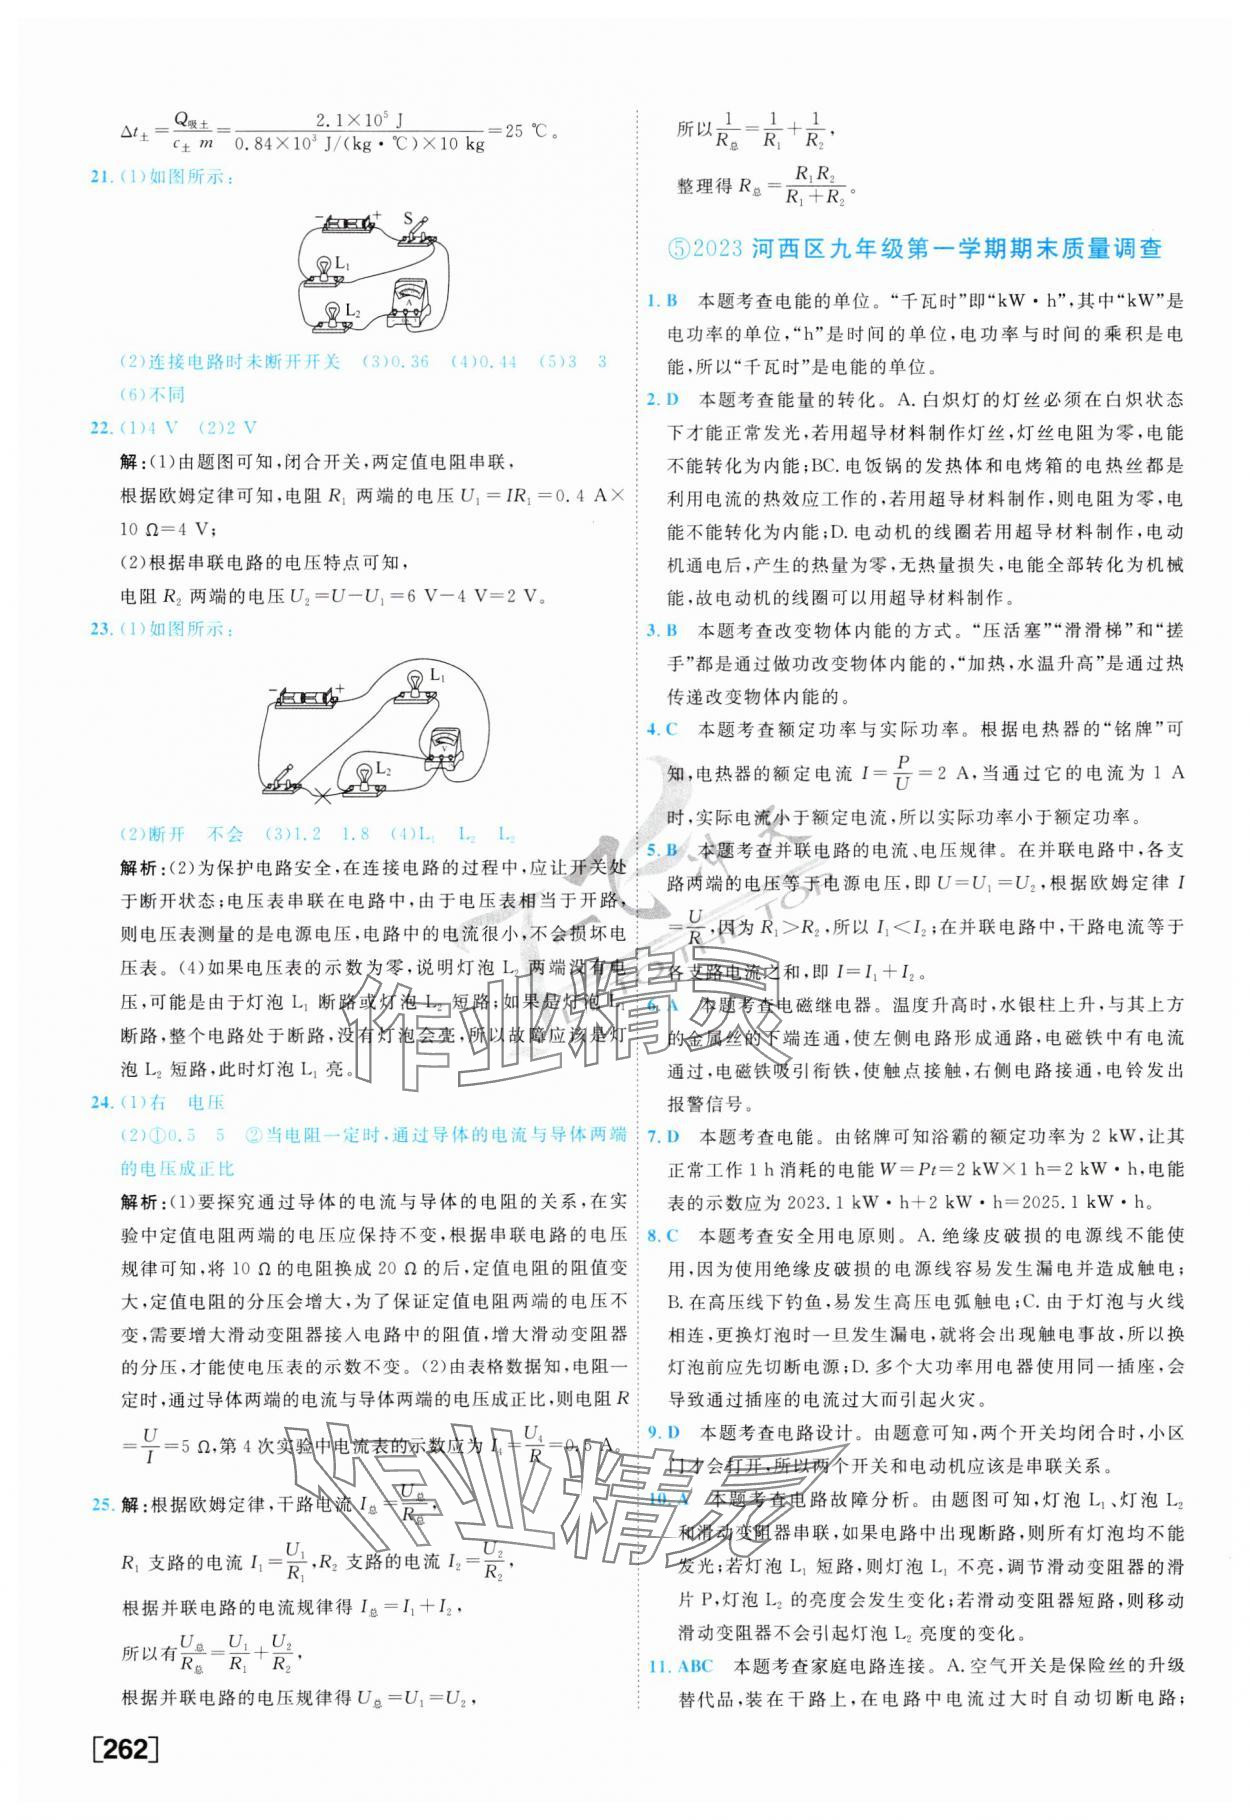 Δt土=Q吸土/(c土 m)=2.1×10⁵ J/(0.84×10³ J/(kg·℃)×10 kg)=25 ℃。
21.(1)如图所示:
− + S
L₁
A
L₂
(2)连接电路时未断开开关 (3)0.36 (4)0.44 (5)3 3
(6)不同
22.(1)4 V (2)2 V
解:(1)由题图可知,闭合开关,两定值电阻串联,
根据欧姆定律可知,电阻 R₁ 两端的电压 U₁=IR₁=0.4 A×
10 Ω=4 V;
(2)根据串联电路的电压特点可知,
电阻 R₂ 两端的电压 U₂=U−U₁=6 V−4 V=2 V。
23.(1)如图所示:
− + L₁
V
L₂
(2)断开 不会 (3)1.2 1.8 (4)L₁ L₂ L₂
解析:(2)为保护电路安全,在连接电路的过程中,应让开关处
于断开状态;电压表串联在电路中,由于电压表相当于开路,
则电压表测量的是电源电压,电路中的电流很小,不会损坏电
压表。(4)如果电压表的示数为零,说明灯泡 L₂ 两端没有电
压,可能是由于灯泡 L₁ 断路或灯泡 L₂ 短路;如果是灯泡 L₁
断路,整个电路处于断路,没有灯泡会亮,所以故障应该是灯
泡 L₂ 短路,此时灯泡 L₁ 亮。
24.(1)右 电压
(2)①0.5 5 ②当电阻一定时,通过导体的电流与导体两端
的电压成正比
解析:(1)要探究通过导体的电流与导体的电阻的关系,在实
验中定值电阻两端的电压应保持不变,根据串联电路的电压
规律可知,将 10 Ω 的电阻换成 20 Ω 的后,定值电阻的阻值变
大,定值电阻的分压会增大,为了保证定值电阻两端的电压不
变,需要增大滑动变阻器接入电路中的阻值,增大滑动变阻器
的分压,才能使电压表的示数不变。(2)由表格数据知,电阻一
定时,通过导体两端的电流与导体两端的电压成正比,则电阻 R
=U/I=5 Ω,第 4 次实验中电流表的示数应为 I₄=U₄/R=0.5 A。
25.解:根据欧姆定律,干路电流 I总=U总/R总,
R₁ 支路的电流 I₁=U₁/R₁,R₂ 支路的电流 I₂=U₂/R₂,
根据并联电路的电流规律得 I总=I₁+I₂,
所以有U总/R总=U₁/R₁+U₂/R₂,
根据并联电路的电压规律得 U总=U₁=U₂,
[262]
所以1/R总=1/R₁+1/R₂,
整理得 R总=R₁R₂/(R₁+R₂)。
⑤2023 河西区九年级第一学期期末质量调查
1. B 本题考查电能的单位。“千瓦时”即“kW·h”,其中“kW”是
电功率的单位,“h”是时间的单位,电功率与时间的乘积是电
能,所以“千瓦时”是电能的单位。
2. D 本题考查能量的转化。A.白炽灯的灯丝必须在白炽状态
下才能正常发光,若用超导材料制作灯丝,灯丝电阻为零,电能
不能转化为内能;BC.电饭锅的发热体和电烤箱的电热丝都是
利用电流的热效应工作的,若用超导材料制作,则电阻为零,电
能不能转化为内能;D.电动机的线圈若用超导材料制作,电动
机通电后,产生的热量为零,无热量损失,电能全部转化为机械
能,故电动机的线圈可以用超导材料制作。
3. B 本题考查改变物体内能的方式。“压活塞”“滑滑梯”和“搓
手”都是通过做功改变物体内能的,“加热,水温升高”是通过热
传递改变物体内能的。
4. C 本题考查额定功率与实际功率。根据电热器的“铭牌”可
知,电热器的额定电流 I=P/U=2 A,当通过它的电流为 1 A
时,实际电流小于额定电流,所以实际功率小于额定功率。
5. B 本题考查并联电路的电流、电压规律。在并联电路中,各支
路两端的电压等于电源电压,即 U=U₁=U₂,根据欧姆定律 I
=U/R,因为 R₁>R₂,所以 I₁<I₂;在并联电路中,干路电流等于
各支路电流之和,即 I=I₁+I₂。
6. A 本题考查电磁继电器。温度升高时,水银柱上升,与其上方
的金属丝的下端连通,使左侧电路形成通路,电磁铁中有电流
通过,电磁铁吸引衔铁,使触点接触,右侧电路接通,电铃发出
报警信号。
7. D 本题考查电能。由铭牌可知浴霸的额定功率为 2 kW,让其
正常工作 1 h 消耗的电能 W=Pt=2 kW×1 h=2 kW·h,电能
表的示数应为 2023.1 kW·h+2 kW·h=2025.1 kW·h。
8. C 本题考查安全用电原则。A.绝缘皮破损的电源线不能使
用,因为使用绝缘皮破损的电源线容易发生漏电并造成触电;
B.在高压线下钓鱼,易发生高压电弧触电;C.由于灯泡与火线
相连,更换灯泡时一旦发生漏电,就将会出现触电事故,所以换
灯泡前应先切断电源;D.多个大功率用电器使用同一插座,会
导致通过插座的电流过大而引起火灾。
9. D 本题考查电路设计。由题意可知,两个开关均闭合时,小区
门才会打开,所以两个开关和电动机应该是串联关系。
10. A 本题考查电路故障分析。由题图可知,灯泡 L₁、灯泡 L₂
和滑动变阻器串联,如果电路中出现断路,则所有灯泡均不能
发光;若灯泡 L₁ 短路,则灯泡 L₁ 不亮,调节滑动变阻器的滑
片 P,灯泡 L₂ 的亮度会发生变化;若滑动变阻器短路,则移动
滑动变阻器不会引起灯泡 L₂ 亮度的变化。
11. ABC 本题考查家庭电路连接。A.空气开关是保险丝的升级
替代品,装在干路上,在电路中电流过大时自动切断电路;
作业精灵
作业精灵